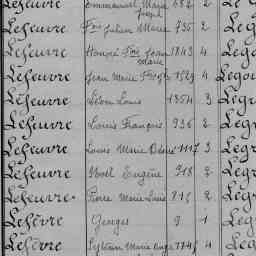 Lefeuvre Emmanuel Marie 682 2 Le G
Joseph
Lefeuvre Fois Julien Marie 735 2 Legr
Lefeuvre Honoré Fois Jean 1843 4 Lego
Marie
Lefeuvre Jean Marie 1829 4 Legou
Lefeuvre Léon Louis 1354 3 Legr
Lefeuvre Louis François 936 2 Legr
Lefeuvre Louis Marie Désiré 1117 3 Legr
Lefeuvre Noël Eugène 918 2 Legr
Lefeuvre Pierre Marie Louis 2 Legr
Lefèvre Georges 9 1 Leg
Lefèvre Sylvain Marie Ange 4 Leg